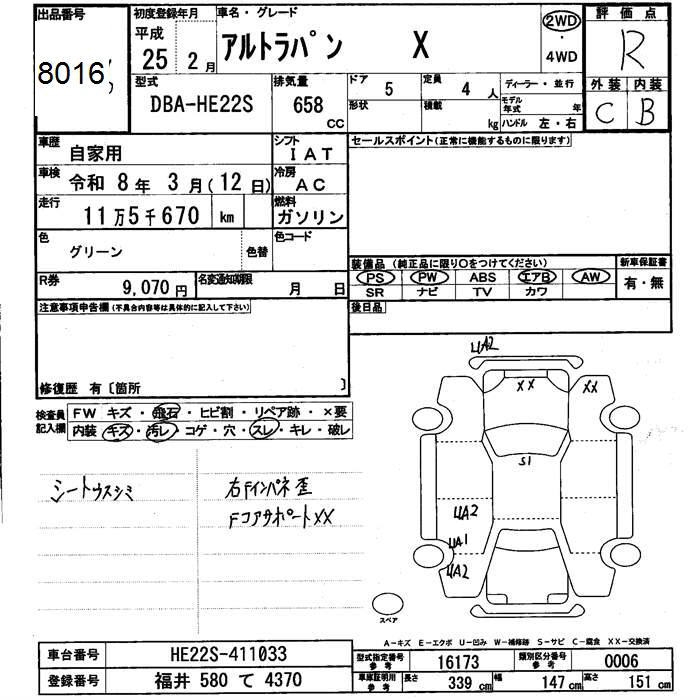 出品番号 初度登録年月 車名・グレード 評価点
8016
平成 25年 2月 アルトラパン X 2WD・4WD R
型式 排気量 ドア 5 定員 4人 ディーラー・並行 外装 内装
DBA-HE22S 658CC 形状 積載 kg モデル年式 年 ハンドル 左・右 C B
車歴 自家用 シフト IAT セールスポイント(正常に機能するものに限ります)
車検 令和 8年 3月(12日) 冷房 AC
走行 11万5千670 km 燃料 ガソリン
色 グリーン 色替 色コード
装備品(純正品に限り〇をつけてください) 新車保証書
R券 9,070円 名変通知期限 月 日 PS PW ABS エアB AW 有・無
SR ナビ TV カワ
注意事項申告欄(不具合内容等は具体的に記入して下さい) 後日品
修復歴 有〔箇所 〕
検査員記入欄 FW キズ・飛石・ヒビ割・リペア跡・×要
内装 キズ・汚レ・コゲ・穴・スレ・キレ・破レ
シートウスシミ 右Fインパネ歪
FコアサポートXX
UA2
XX XX
S1
UA2
UA1
UA2
スペア
A-キズ E-エクボ U-凹み W-補修跡 S-サビ C-腐食 XX-交換済
車台番号 HE22S-411033 型式指定番号参考 16173 類別区分番号参考 0006
登録番号 福井 580 て 4370 車庫証明用参考 長さ 339cm 幅 147cm 高さ 151cm